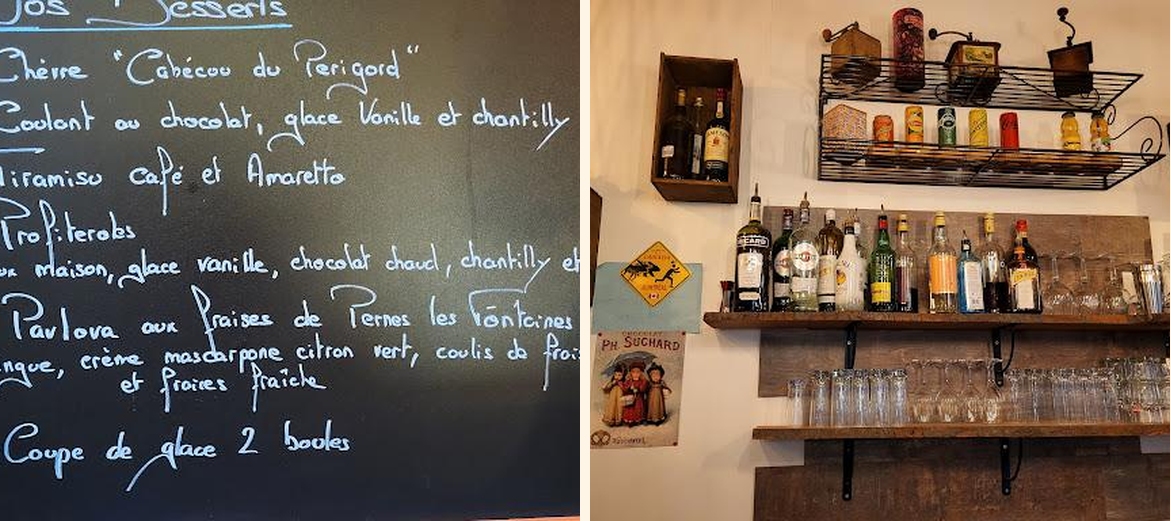 Nos Desserts
Chèvre "Cabécou du Perigord"
Coulant au chocolat, glace Vanille et chantilly
Tiramisu café et Amaretto
Profiteroles
maison, glace vanille, chocolat chaud, chantilly et
Pavlova aux fraises de Pernes les Fontaines
crème mascarpone citron vert, coulis de
et fraises fraîche
Coupe de glace 2 boules
RICARD
CANADA
PH SUCHARD